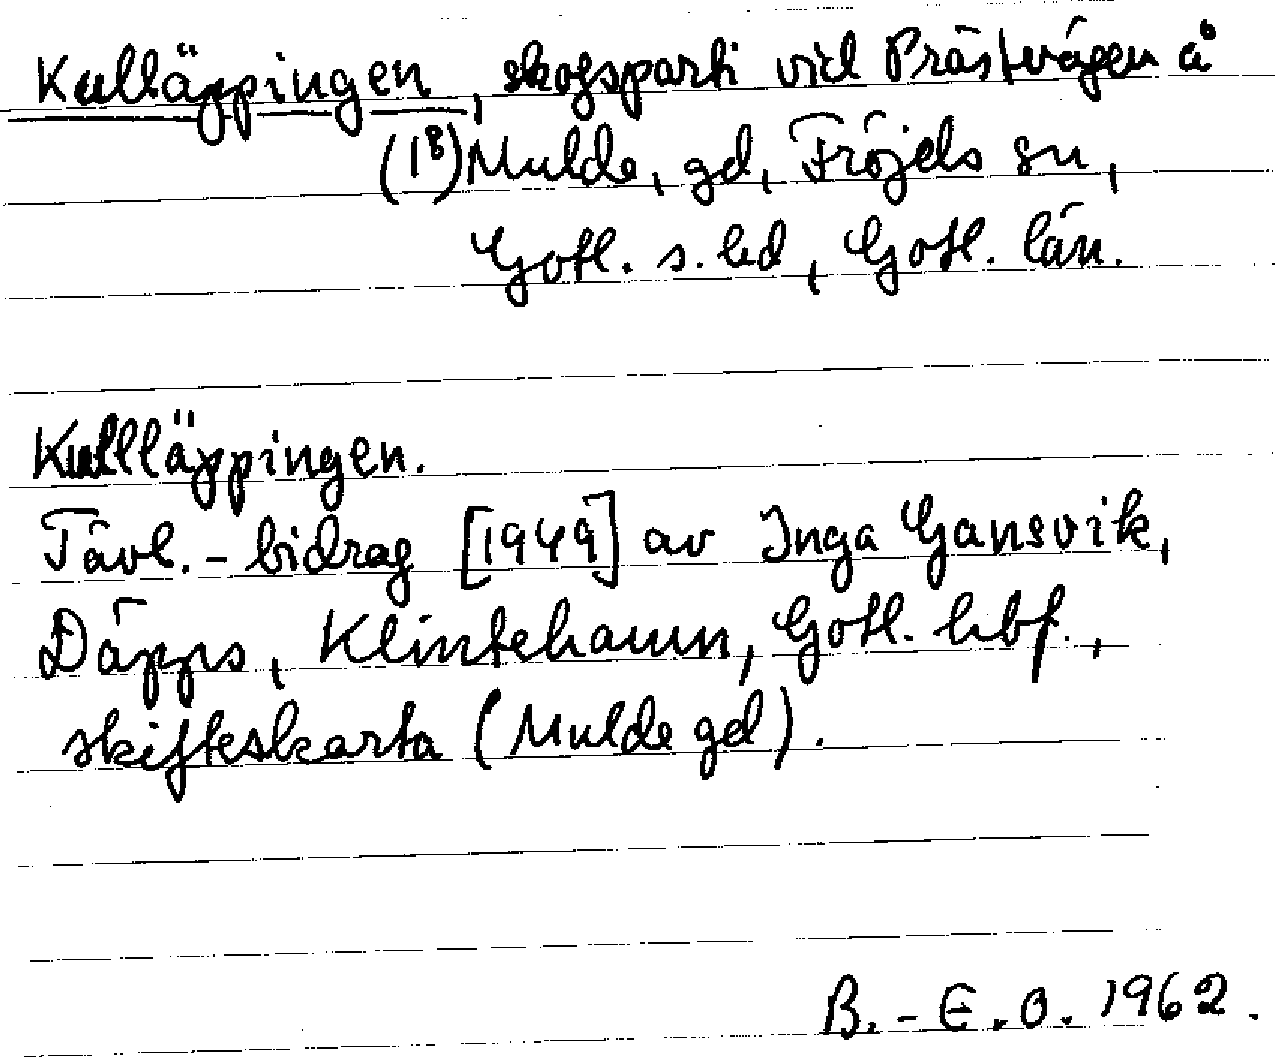 Kulläppingen, skogsparti vid Prästvägen å
(1⁸) Mulde, gd, Fröjels sn,
Gotl. s. hd, Gotl. län.
Kullläppingen.
Tävl.-bidrag [1949] av Inga Gansvik,
Däpps, Klintehamn, Gotl. hbf.,
skifteskarta (Mulde gd).
B.-E.O. 1962.